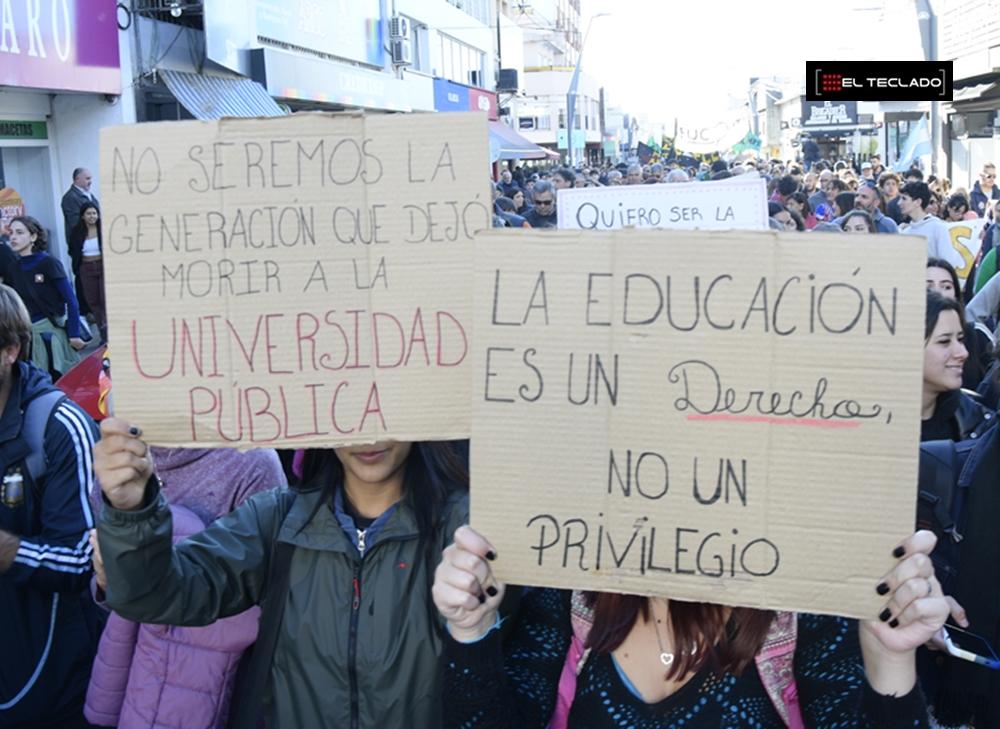 ARO
EL TECLADO
MACETAS
NO SEREMOS LA
GENERACIÓN QUE DEJÓ
MORIR A LA
UNIVERSIDAD
PÚBLICA
QUIERO SER LA
LA EDUCACIÓN
ES UN Derecho,
NO UN
PRIVILEGIO